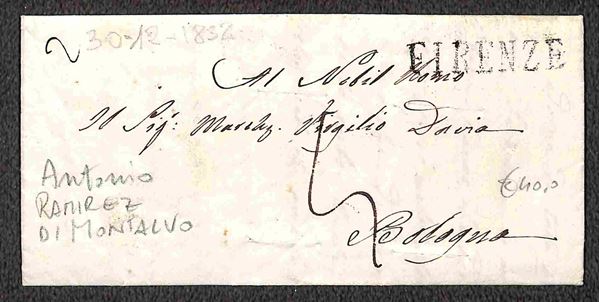 30-12-1832
FIRENZE
Al Nobil Uomo
Il Sigr: Marchz. Virgilio Davia
Antonio
RAMIREZ
DI MONTALVO
€40,0
Bologna